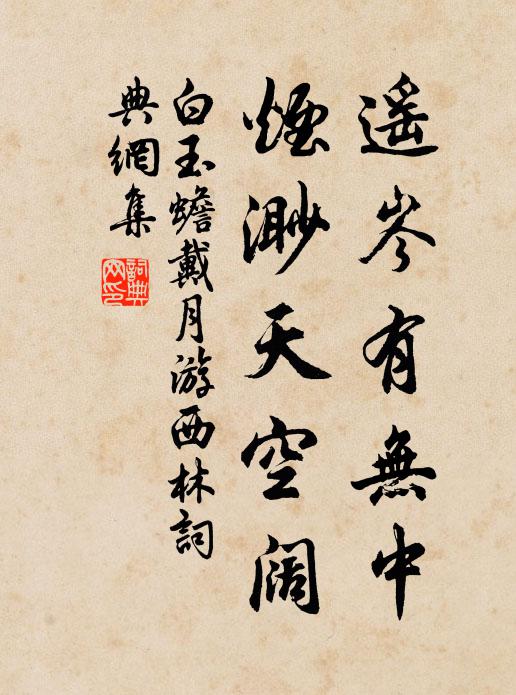 遥岑有無中
煙渺天空阔
白玉蟾戴月游西林詞
典網集
詞典
网印